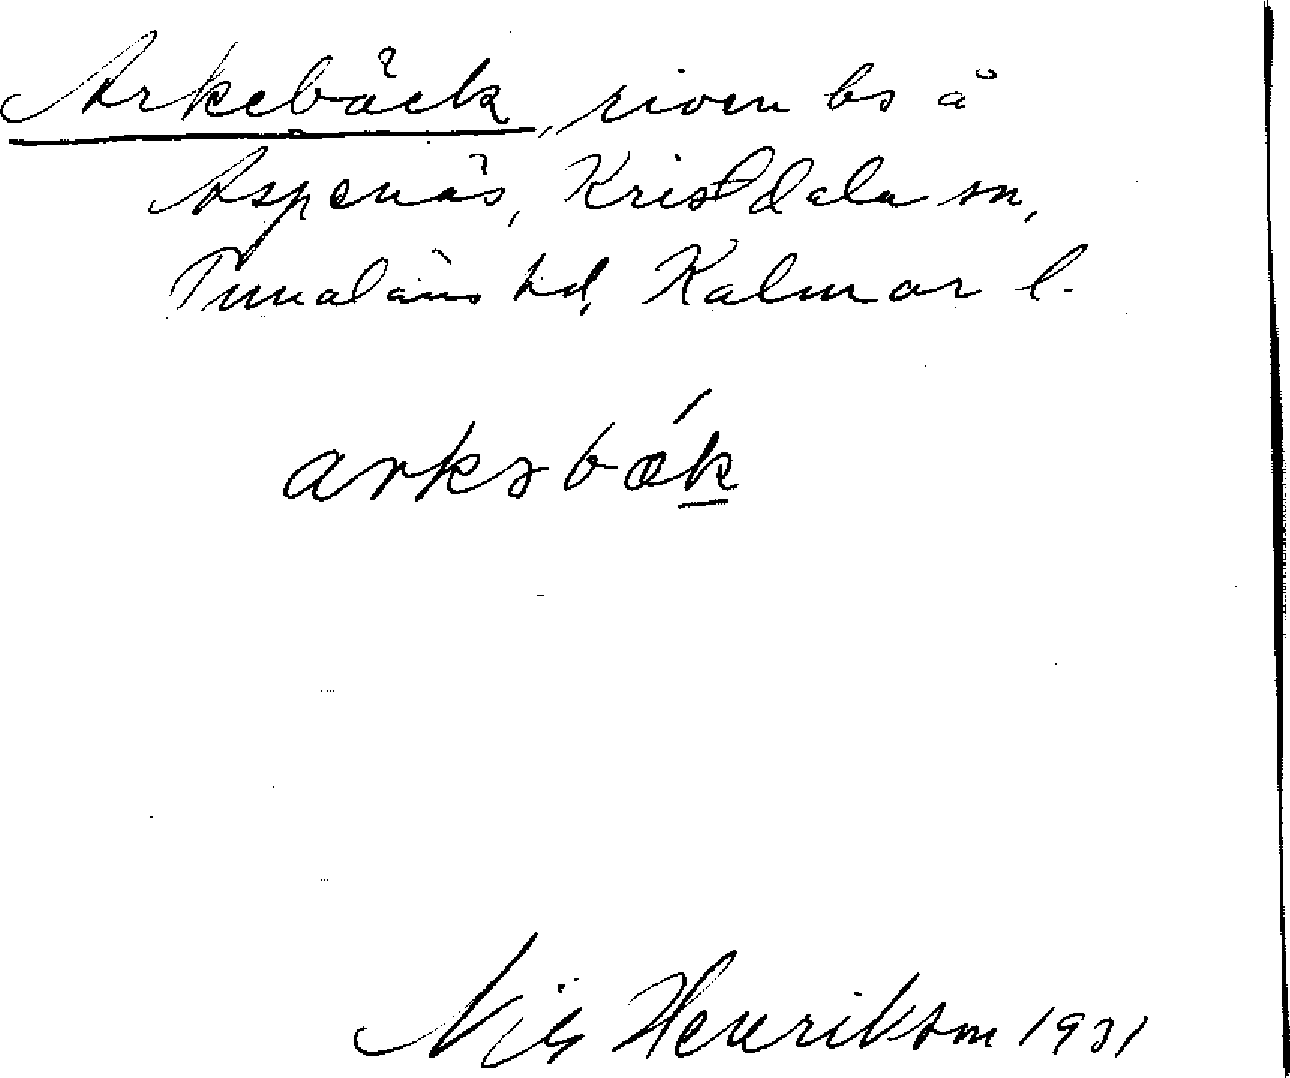 Arkebäck, riven bs å
Aspenäs, Kristdala sn,
Tunaläns hd, Kalmar l.
arkəbæ´k
Nils Henrikson 1931